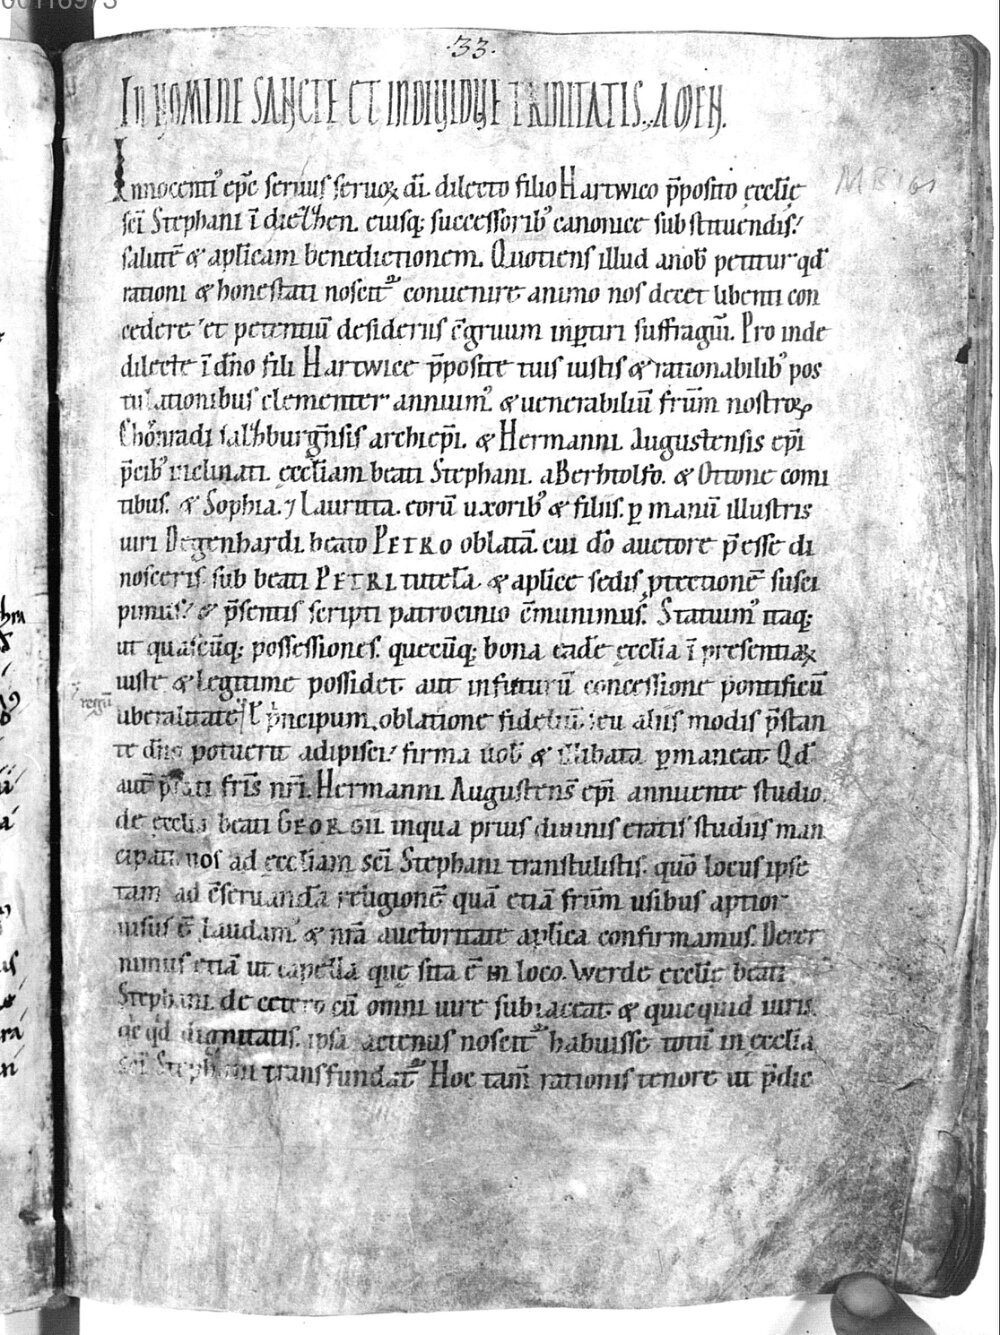 .33.
IN NOMINE SANCTE ET INDIVIDUE TRINITATIS. AMEN.
Innocenti᾽ ep̄c seruus seruoꝝ dī. dilecto filio Hartwico p̄posito ęcclię
sc̄i Stephani ī dieſſen. eiusq; successorib᾽ canonice substituendis.
salutē & aplicam benedictionem. Quotiens illud a nob̄ petitur qd̄
rationi & honestati noscit᾽ conuenire animo nos decet libenti con
cedere et petentiū desideriis c̄gruum inꝑtiri suffragiū. Pro inde
dilecte ī dn̄o fili Hartwice p̄posite tuis iustis & rationabilib᾽ pos
tulationibus clementer annuim᾽. & uenerabiliū fr̄m nostroꝝ
Chōnradi salzburgn̄sis archiep̄i. & Hermanni Augustensis ep̄i
p̄cib᾽ inclinati. ęccl̄iam beati Stephani. a Berhtolfo. & Ottone comi
tibus. & Sophia. ⁊ Lauritta. eorū uxorib᾽ & filiis. ꝑ manū illustris
uiri Degenhardi. beato PETRO oblatā. cui dō auctore p̄esse di
nosceris. sub beati PETRI tutela. & aplicę sedis ꝓtectionē susci
pimus. & p̄sentis scripti patrocinio c̄munimus. Statuim᾽ itaq;
ut quascūq; possessiones. quecūq; bona eadē ęccl̄ia ī presentiaꝝ
iuste & legitime possidet. aut in futurū concessione pontificū
regū
liberalitate ł p̄ncipum. oblatione fideliū. seu aliis modis p̄stan
te dn̄o potuerit adipisci. firma uob̄ & illibata ꝑmaneat. Qd̄
autē p̄fati fr̄is nr̄i. Hermanni Augustens̄ ep̄i annuente studio.
de ęcclia beati GEORGII. in qua prius diuinis eratis studiis man
cipati. uos ad ęccl̄iam sc̄i Stephani transtulistis. quō locus ipse
tam ad c̄seruandā religionē quā etiā fr̄m usibus aptior
uisus ē. laudam᾽ & nr̄a auctoritate aplica confirmamus. Decer
nimus etiā ut capella quę sita ē in loco. Werde ęcclię beati
Stephani. de cetero cū omni iure subiaceat. & quicquid iuris.
qd̄ dignitatis. ipsa actenus noscit᾽ habuisse totū in ęccl̄ia
sc̄i Stephani transfundat᾽. Hoc tam̄ rationis tenore ut p̄dic